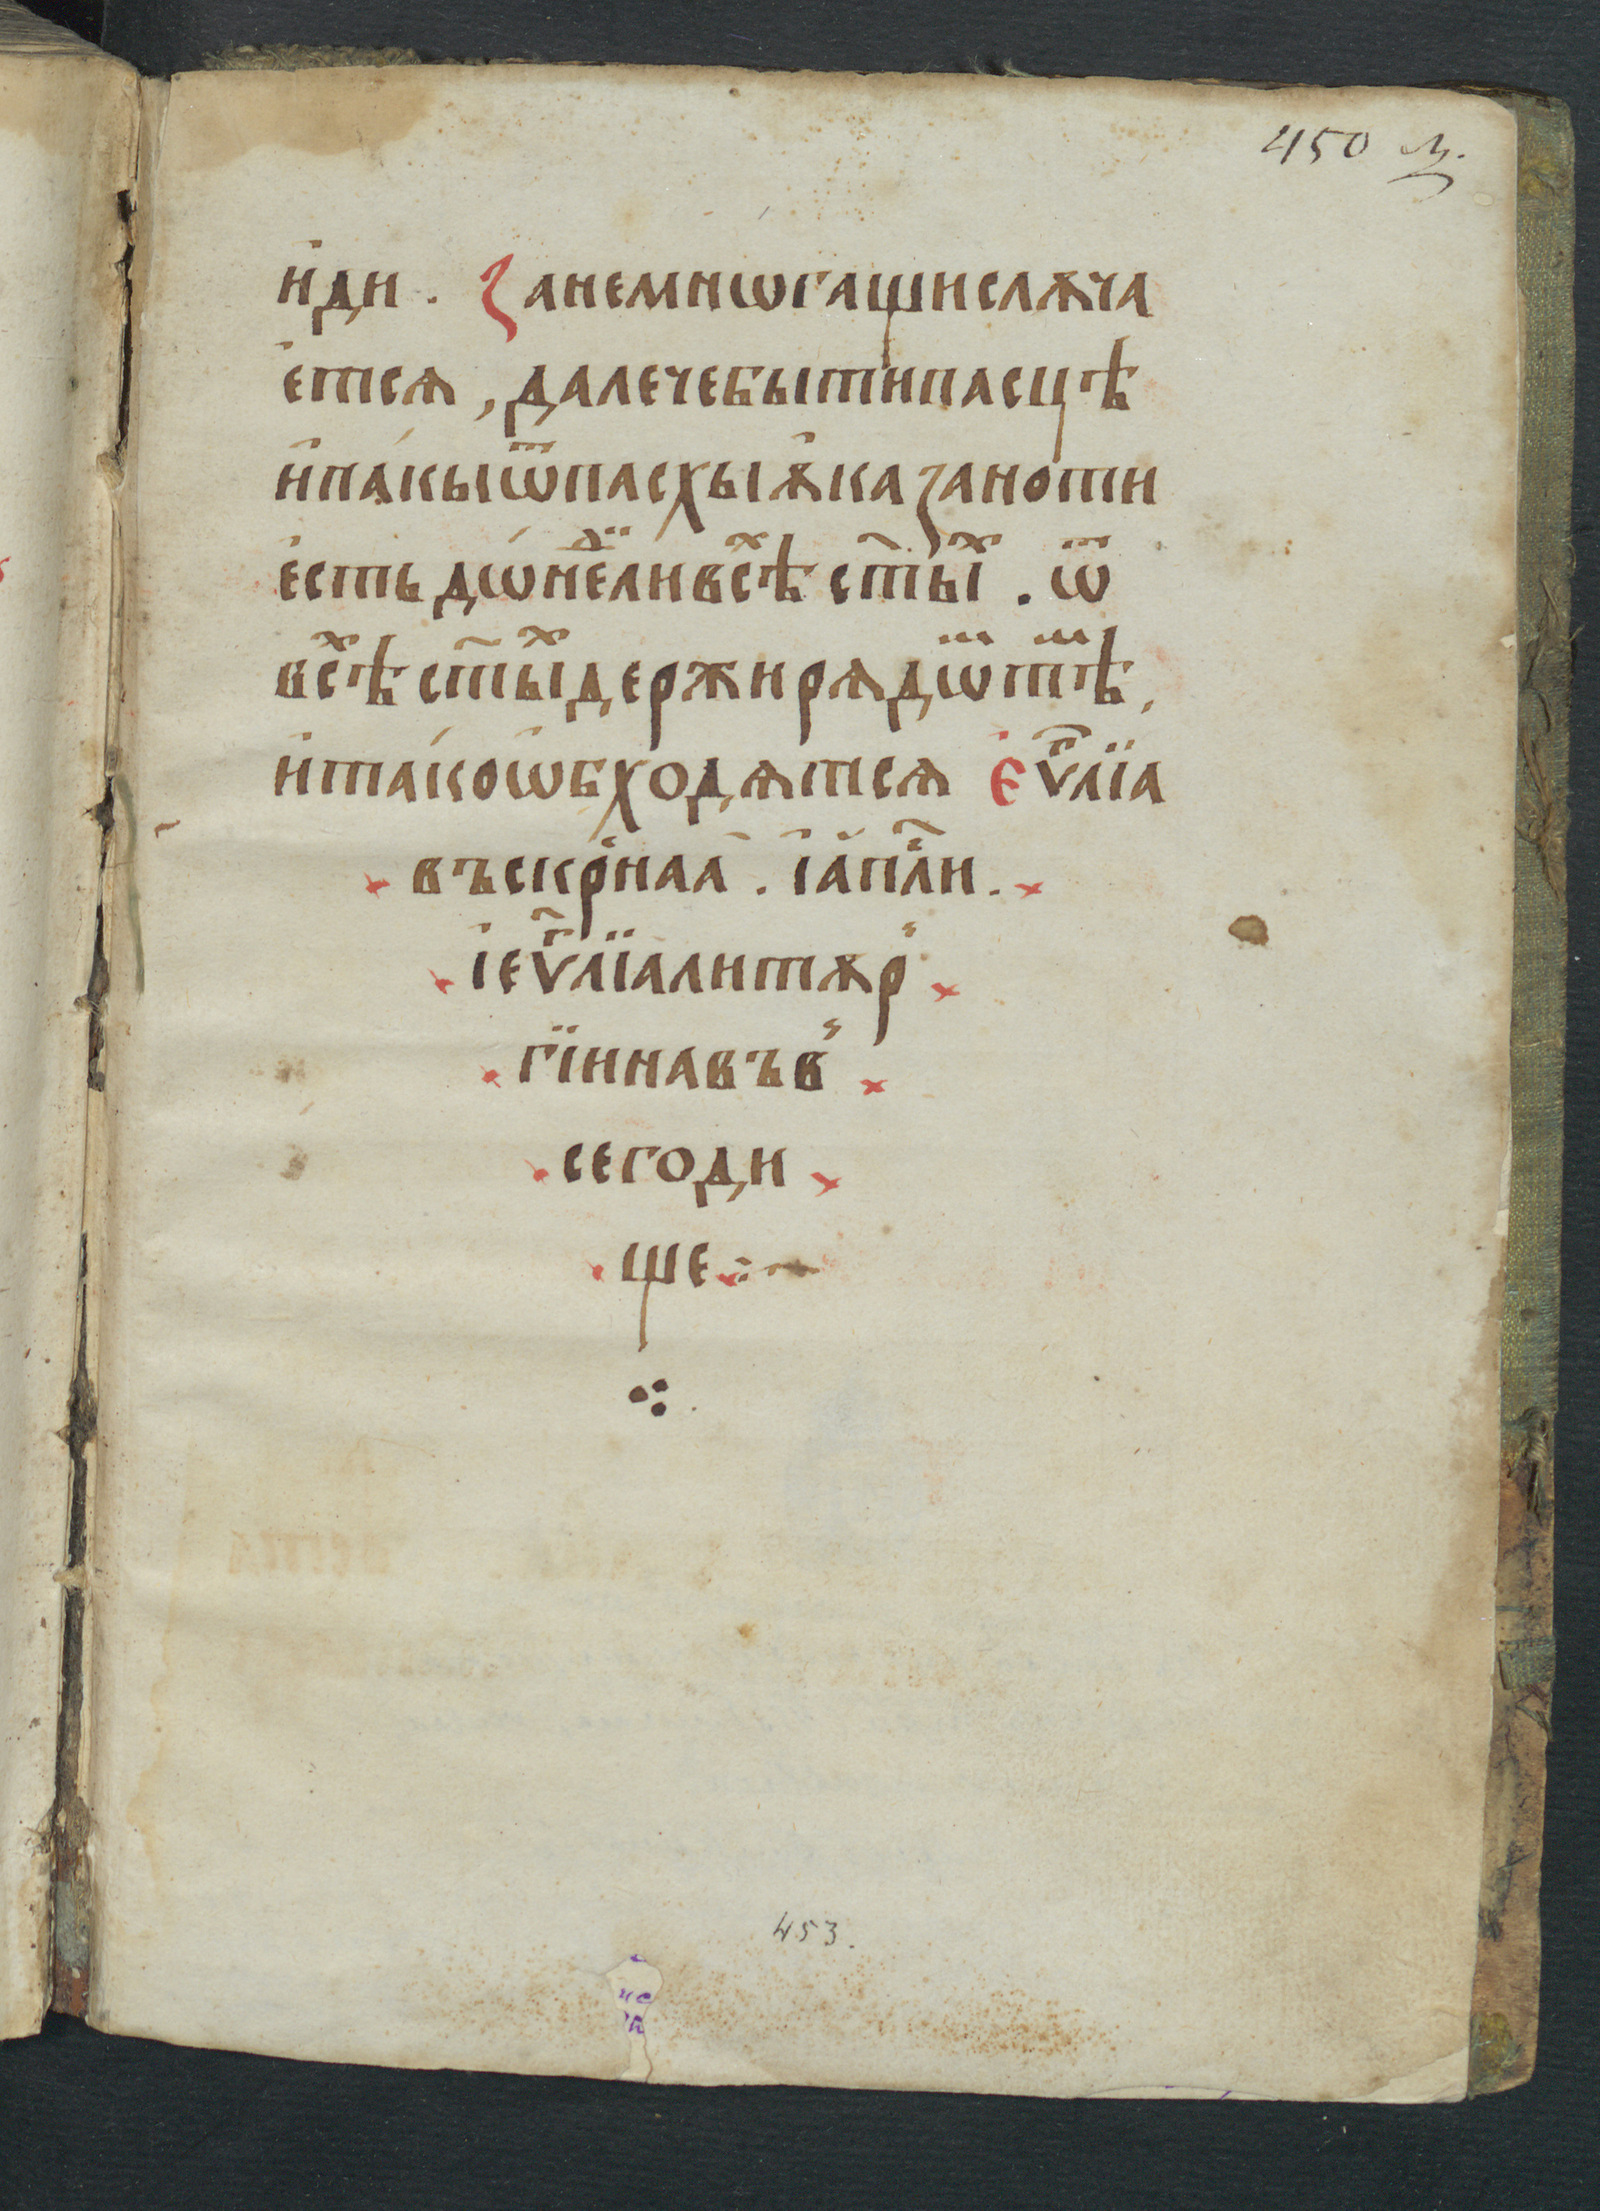 450 м.
и҆ди . Занемнѡгащиелѫча
е҆тсѧ , далечебытипасцѣ
и҆па́кыѿпасхыꙗ҆казаноти
е҆стьдѡ́нⷣе҃ливсⷯѣст҃ыⷯ . ѿ
всⷯѣст҃ыⷯдержирѧдѡⷮтⷨѣ,
и҆та́коѡ҆бходѧтсѧ Еѵⷢ҇лїа
въскр҃наа . і҆а҆пⷭ҇ли .
і҆еѵⷢ҇лїалитѫр
гїиннавъв
сегоди
ще
453.
ис